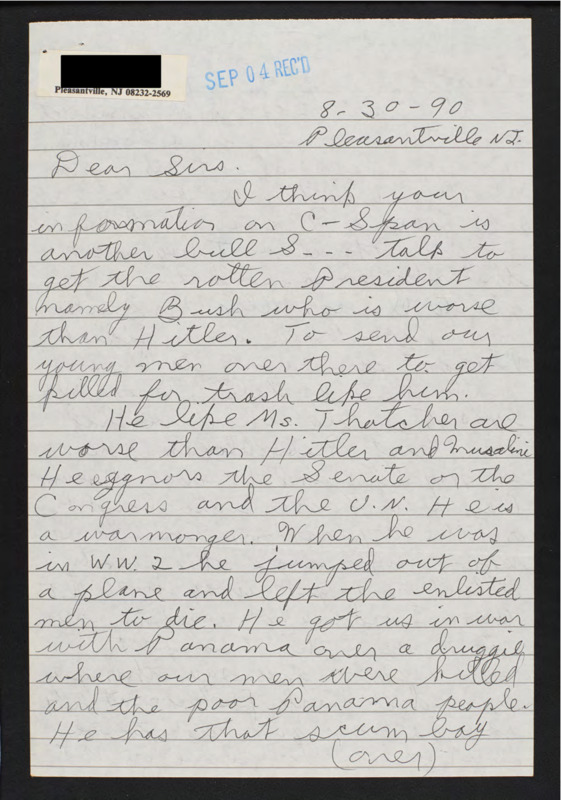 Pleasantville, NJ 08232-2569
SEP 04 REC'D
8-30-90
Pleasantville NJ.
Dear Sirs.
I think your
information on C-Span is
another bull S--- talk to
get the rotten President
namely Bush who is worse
than Hitler. To send our
young men over there to get
killed for trash like him.
He like Ms. Thatcher are
worse than Hitler and Musaline
He eggnors the Senate or the
Congress and the U.N. He is
a warmonger. When he was
in WW.2 he jumped out of
a plane and left the enlisted
men to die. He got us in war
with Panama over a druggie
where our men were killed
and the poor Panama people.
He has that scum bag
(over)